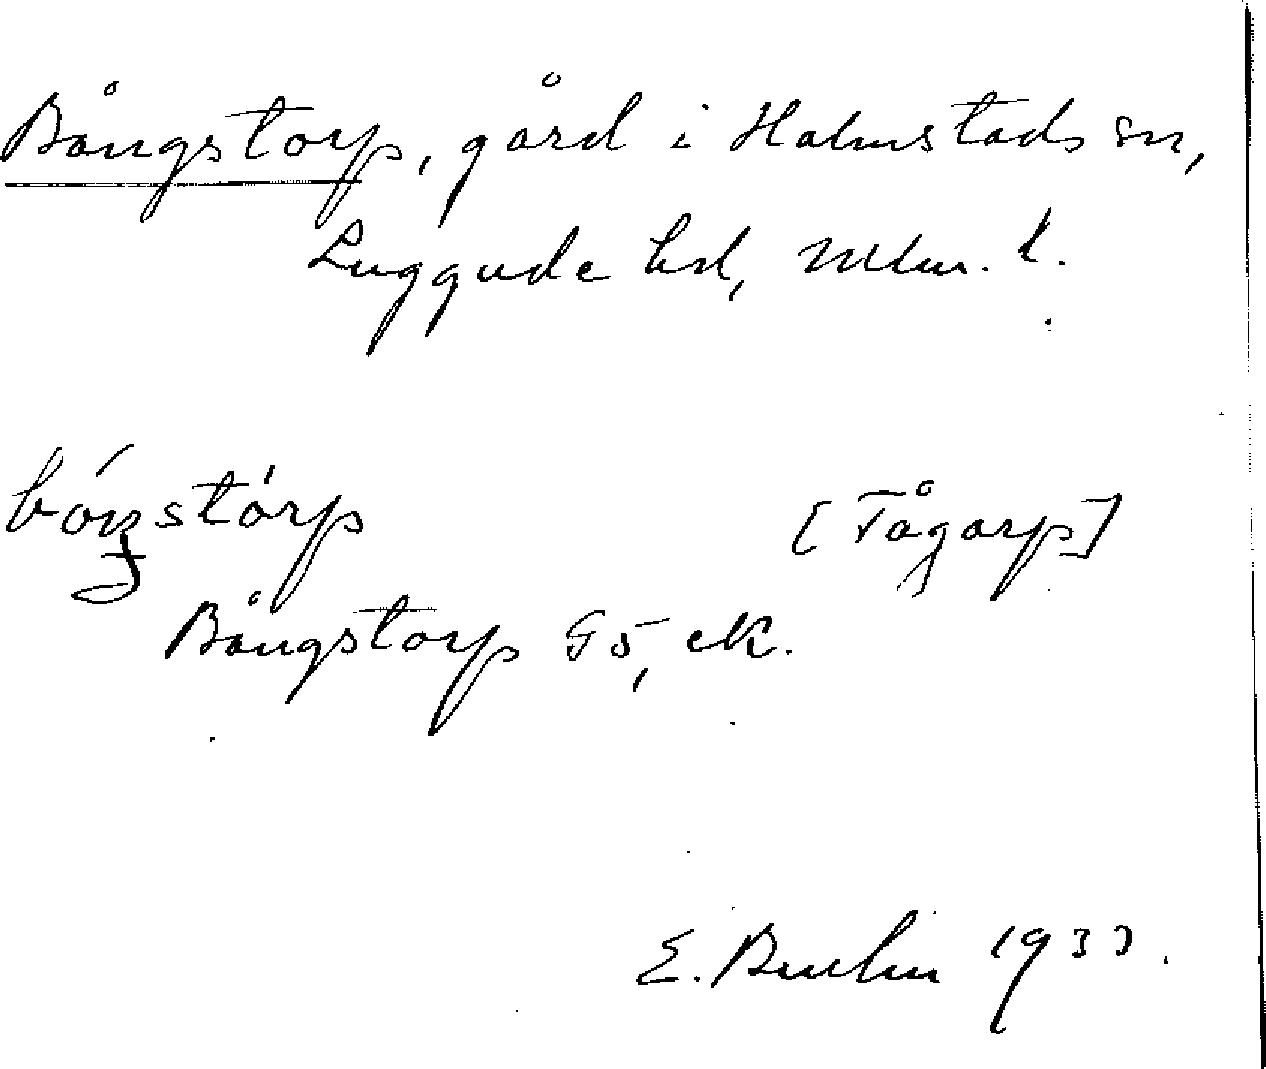 Bångstorp, gård i Halmstads sn,
Luggude hd, Mlm. l.
[Tågarp]
Bångstorp G5, ek.
E. 1933.